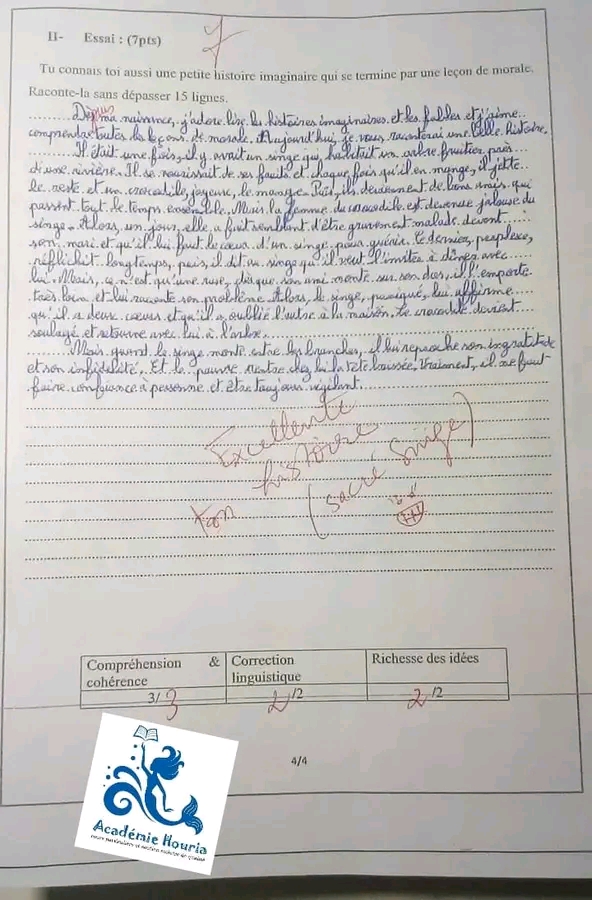 7
II- Essai : (7pts)
Tu connais toi aussi une petite histoire imaginaire qui se termine par une leçon de morale.
Raconte-la sans dépasser 15 lignes.
Depuis ma naissance, j'adore lire les histoires imaginaires et les fables et j'aime
comprendre toutes les leçons de morale. Aujourd'hui, je vous raconterai une belle histoire.
Il était une fois, il y avait un singe qui habitait un arbre fruitier près
d'une rivière. Il se nourissait de ses fruits et chaque fois qu'il en mange, il jette
le reste et un crocodile, joyeuse, le mange. Puis, ils deviennent de bons amis qui
passent tout de temps ensemble. Mais la femme du crocodile est devenue jalouse du
singe. Alors, un jour, elle a fait semblant d'être gravement malade devant
son mari et qu'il lui faut le cœur d'un singe pour guérir. Ce dernier, perplexe,
réfléchit longtemps, puis, il dit au singe qu'il veut l'invités à dîner avec
lui. Mais, ce n'est qu'une ruse, dès que son ami monte sur son dos, il l'emporte
très loin et lui raconte son problème. Alors, le singe, paniqué, lui affirme
qu'il a deux cœurs et qu'il a oublié l'autre à la maison. Le crocodile devient
soulagé et retourne avec lui à l'arbre.
Mais quand le singe monte entre les branches, il lui reproche son ingratitude
et son infidélité. Et le pauvre rentre chez lui la tête baissée. Vraiment, il ne faut
faire confiance à personne et être toujours vigilant.
Excellente
ton histoire
(sacré singe)
Compréhension & cohérence
Correction linguistique
Richesse des idées
3/3
2/2
2/2
4/4
Académie Houria